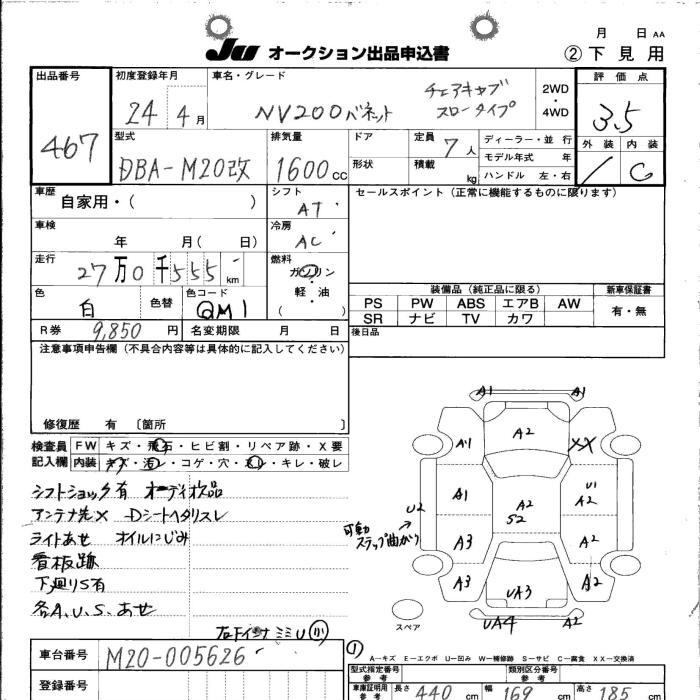 月 日 AA
JU オークション出品申込書 ②下見用
出品番号 467
初度登録年月 24 4月
車名・グレード NV200バネット チェアキャブ スロープタイプ
2WD・4WD
評価点 3.5
外装 内装 C
型式 DBA-M20改
排気量 1600cc
ドア
形状
定員 7人
積載 kg
ディーラー・並行
モデル年式 年
ハンドル 左・右
車歴 自家用・( )
シフト AT
セールスポイント(正常に機能するものに限ります)
車検 年 月( 日)
冷房 AC
走行 27万0千555km
燃料 ガソリン・軽油・( )
色 白 色替 色コード QM1
装備品(純正品に限る) 新車保証書
PS PW ABS エアB AW 有・無
SR ナビ TV カワ
R券 9,850円 名変期限 月 日
後日品
注意事項申告欄(不具合内容等は具体的に記入してください)
修復歴 有 〔箇所 〕
検査員記入欄
FW キズ・飛石・ヒビ割・リペア跡・X要
内装 キズ・汚レ・コゲ・穴・スレ・キレ・破レ
シフトショック有 オーディオ欠品
アンテナ先X Dシートヘタリスレ
ライトあせ オイルにじみ
看板跡
下廻りS有
各A.U.S.あせ
A1 A1
A2
A1 XX
A1 U1 A2
U2 A2 S2
可動ステップ曲がり
A3 A2
A3 A2
UA3
UA4 A2
スペア
A-キズ E-エクボ U-凹み W-補修跡 S-サビ C-腐食 XX-交換済
車台番号 M20-005626
登録番号
型式指定番号 参考
類別区分番号 参考
車庫証明用 参考 長さ 440 cm 幅 169 cm 高さ 185 cm